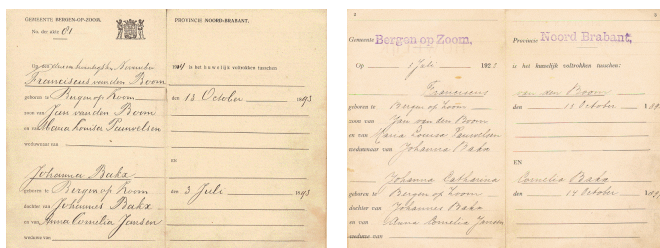 GEMEENTE BERGEN-OP-ZOOM. PROVINCIE NOORD-BRABANT.
No. der akte 61
Op den November 19 is het huwelijk voltrokken tusschen
Franciscus van den Boom
geboren te Bergen op Zoom den 13 October 1893
zoon van Jan van den Boom
en van Maria Louisa Pauwelsen
weduwnaar van
EN
Johanna Bakx
geboren te Bergen op Zoom den 3 Juli 1893
dochter van Johannes Bakx
en van Anna Cornelia Jansen
weduwe van
Gemeente Bergen op Zoom. Provincie Noord Brabant.
Op 1 Juli 192 is het huwelijk voltrokken tusschen:
Franciscus van den Boom
geboren te Bergen op Zoom den October
zoon van Jan van den Boom
en van Maria Louisa Pauwelsen
weduwnaar van Johanna Bakx
EN
Johanna Catharina Cornelia Bakx
geboren te Bergen op Zoom den October
dochter van Johannes Bakx
en van Anna Cornelia Jansen
weduwe van